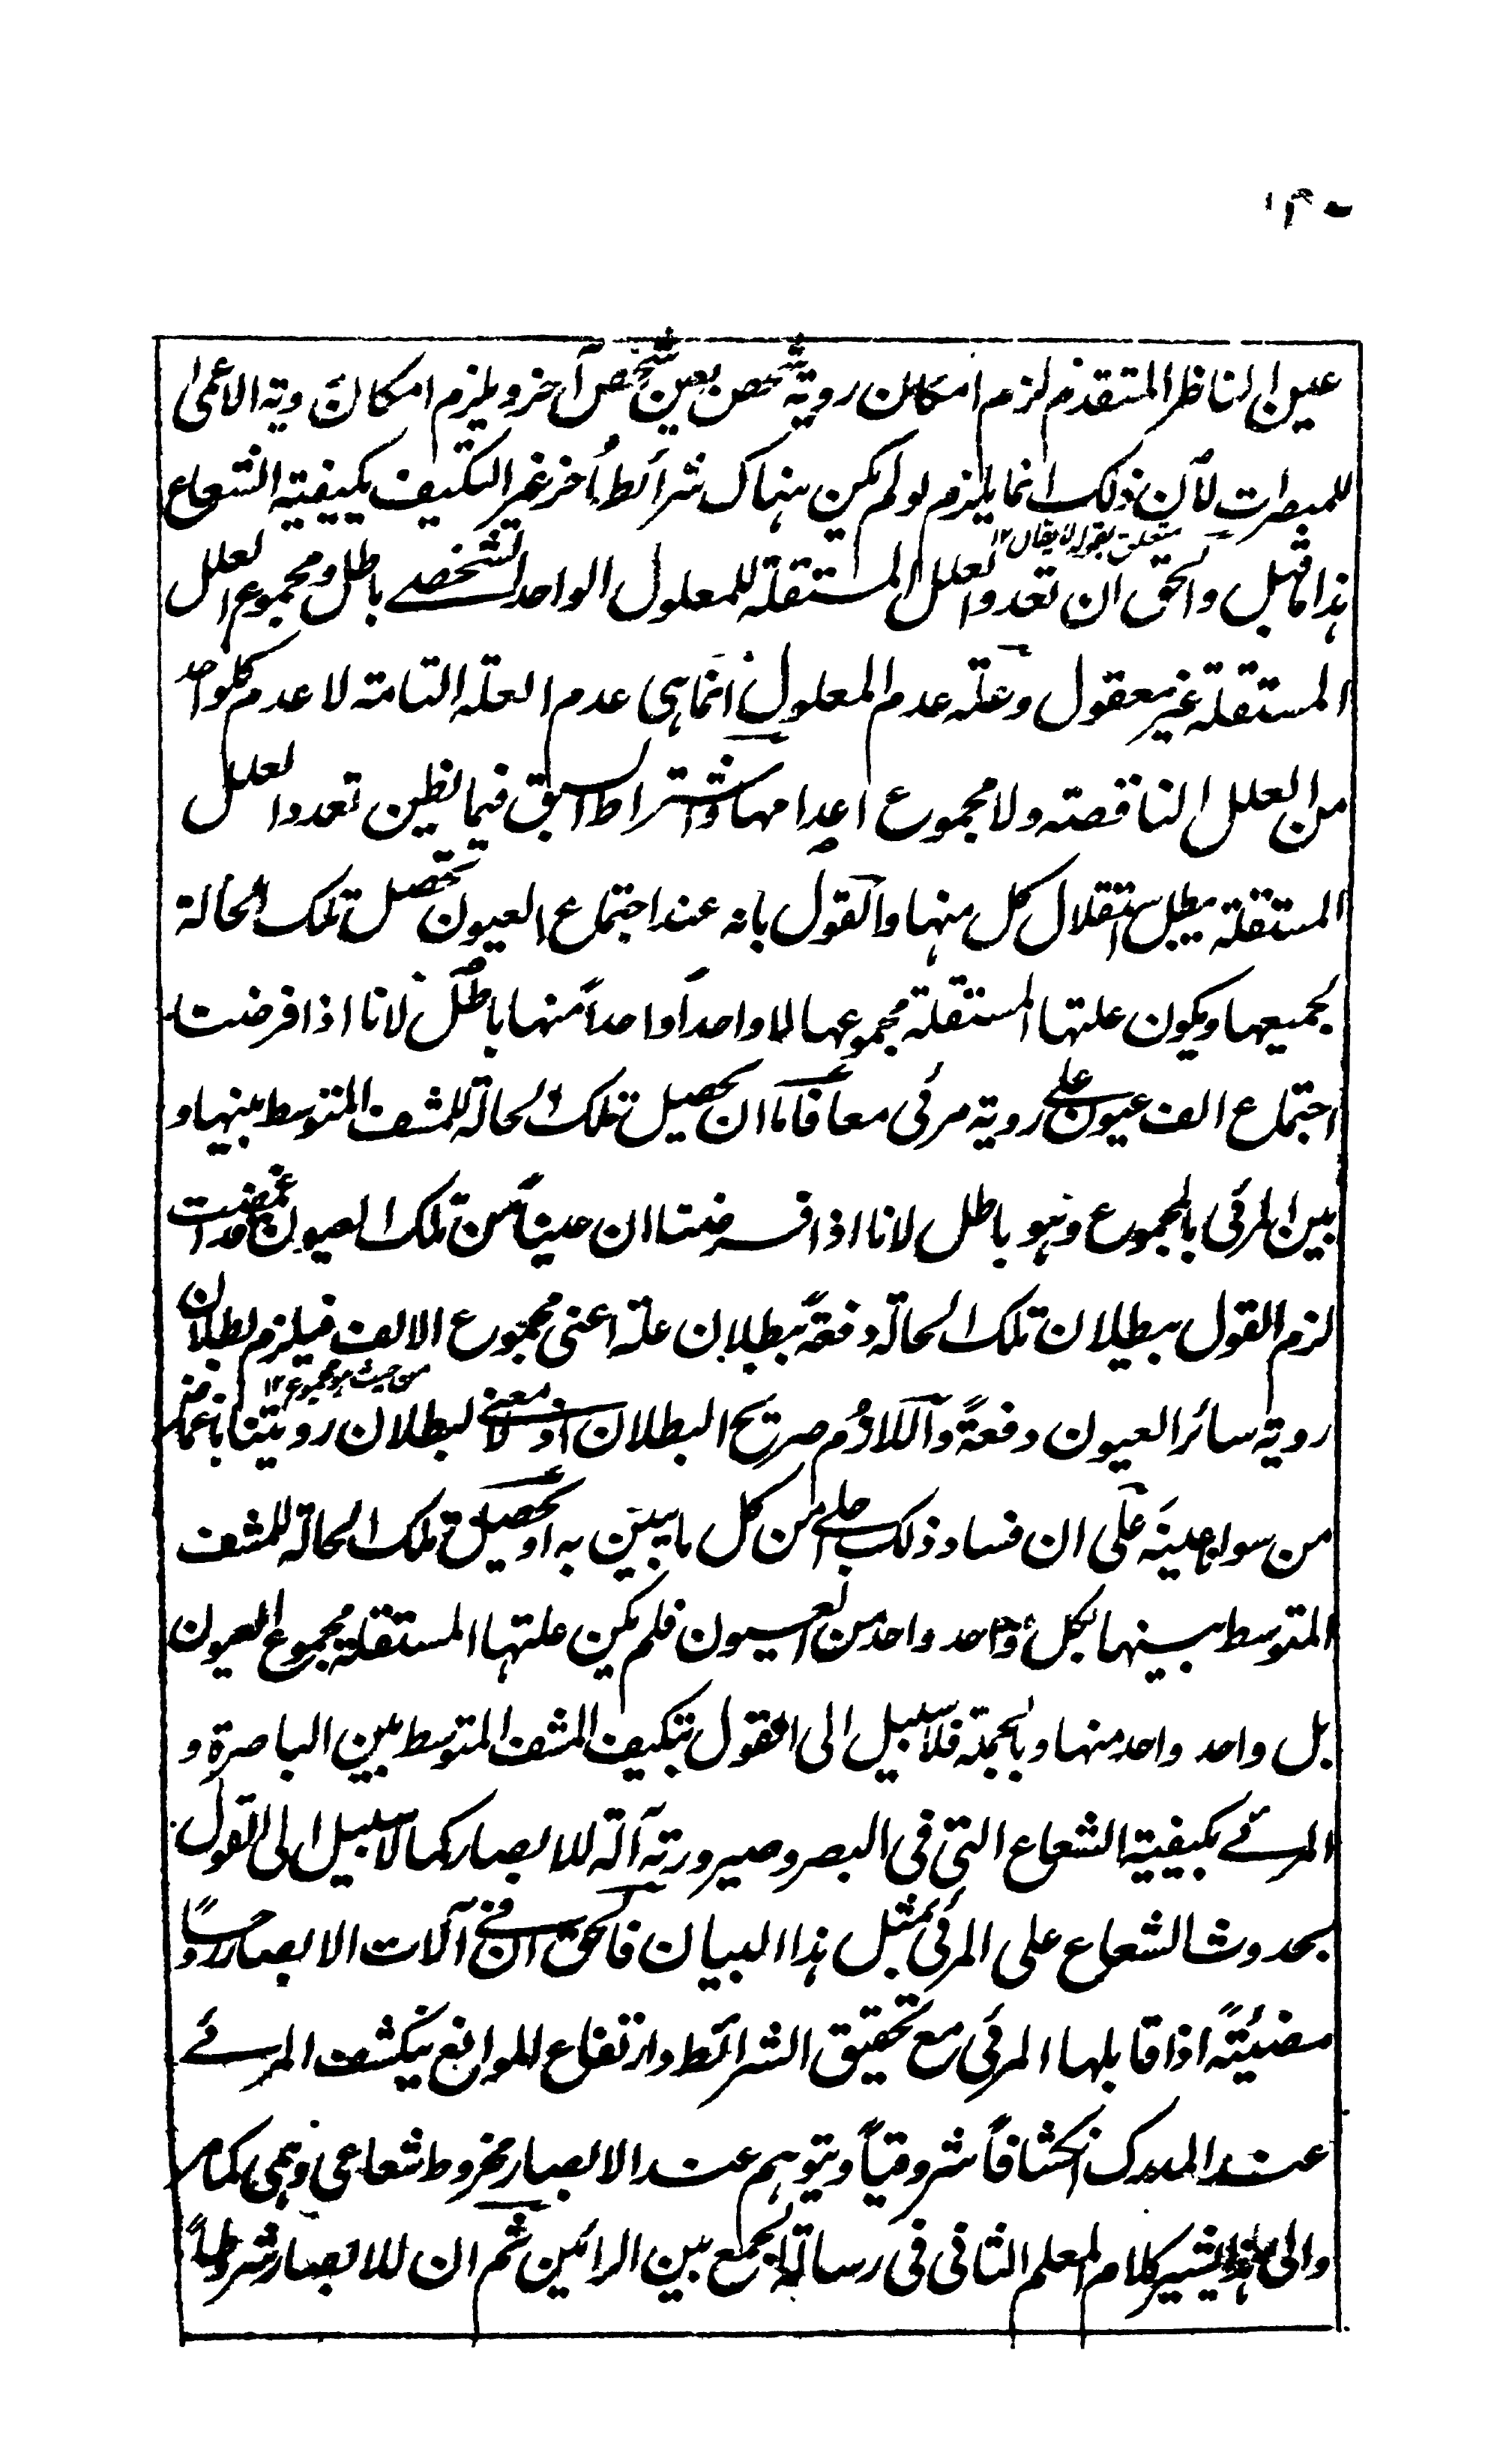 ١٣٠
عين الناظر المتقدم لزم امكان روية شخص بعين شخص آخر ويلزم امكان روية الاعمى
للمبصرات لأن ذلك انما يلزم لو لم يكن هناك شرائط أخر غير التكيف بكيفية الشعاع
متعلق بقوله لا يقال ١٢
هذا ما قيل والحق ان تعدد العلل المستقلة للمعلول الواحد الشخصے باطل ومجموع العلل
المستقلة غير معقول وعلة عدم المعلول انما هى عدم العلة التامة لا عدم كلواحد
من العلل الناقصة ولا مجموع اعدامها واشتراط السبق فيما يظن تعدد العلل
المستقلة يبطل استقلال كل منها والقول بانه عند اجتماع العيون تحصل تلك الحالة
بجميعها ويكون علتها المستقلة مجموعها لا واحداً واحداً منها باطل لانا اذا فرضنا
اجتماع الف عيون علے روية مرئى معا فاما ان تحصيل تلك الحالة للمشف المتوسط بينها و
بين المرئى بالمجموع وهو باطل لانا اذا فرضنا ان عيناً من تلك العيون قد انغمضت
لزم القول ببطلان تلك الحالة دفعةً ببطلان علة اعنى مجموع الالف فيلزم بطلان
من حيث هو مجموع ١٢
روية سائر العيون دفعةً واللازم صريح البطلان اذ لا معنے لبطلان رويتنا باغماض
من سوانا عينه على ان فساد ذلك اجلے من كل ما يبين به او تحصيل تلك الحالة للمشف
المتوسط بينها بكل واحد واحد من العيون فلم يكن علتها المستقلة مجموع العيون
بل واحد واحد منها وبالجملة فلا سبيل الى القول بتكيف المشف المتوسط بين الباصرة و
المرئے بكيفية الشعاع التى فى البصر وصيرورته آلة للابصار كما لا سبيل الى القول
بحدوث الشعاع على المرئى بمثل هذا البيان فالحق ان فے آلات الابصار روحاً
مضيئة اذا قابلها المرئى مع تحقيق الشرائط وارتفاع الموانع ينكشف المرئے
عند المدرك انكشافاً شروقياً ويتوهم عند الابصار مخروط شعاعى وهمى كما مر
والى هذا يشير كلام المعلم الثانى فى رسالة الجمع بين الرائين ثم ان للابصار شروطاً